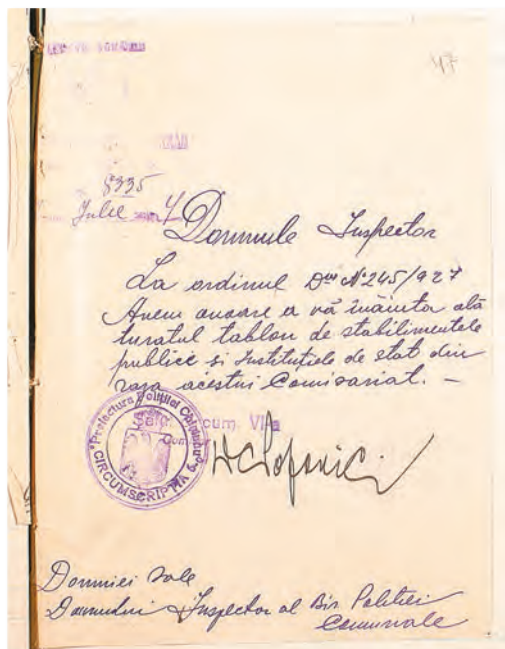 47
8335
Julie 4
Domnule Inspector
La ordinul Dvs N° 245/927
Avem onoare a vă înainta ală
turatul tablou de stabilimentele
publice si Institutiele de stat din
raza acestui Comisariat. —
Prefectura Politiei Chisinau
CIRCUMSCRIPTIA 6
Domniei sale
Domnului Inspector al Bir. Politiei
Comunale